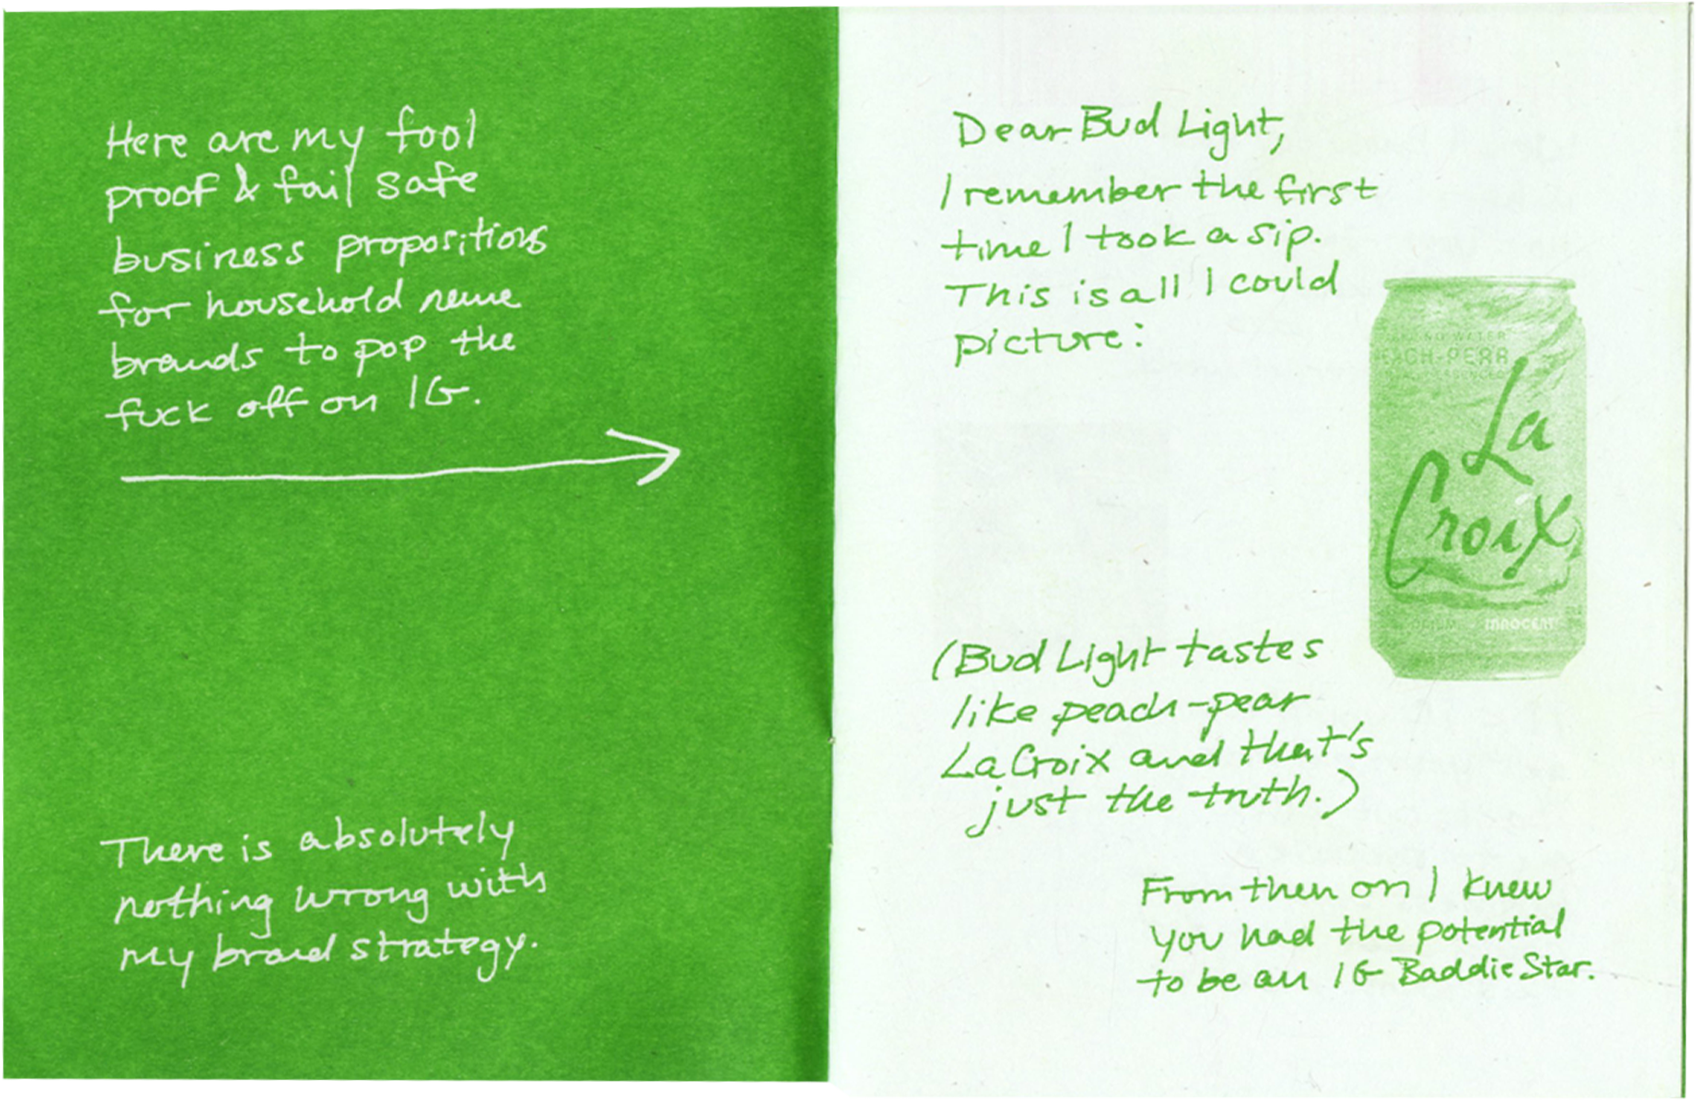 Here are my fool
proof & fail safe
business propositions
for household name
brands to pop the
fuck off on IG.
There is absolutely
nothing wrong with
my brand strategy.
Dear Bud Light,
I remember the first
time I took a sip.
This is all I could
picture:
PEACH-PEAR
La
Croix
INNOCENT
(Bud Light tastes
like peach-pear
LaCroix and that's
just the truth.)
From then on I knew
you had the potential
to be an IG Baddie Star.